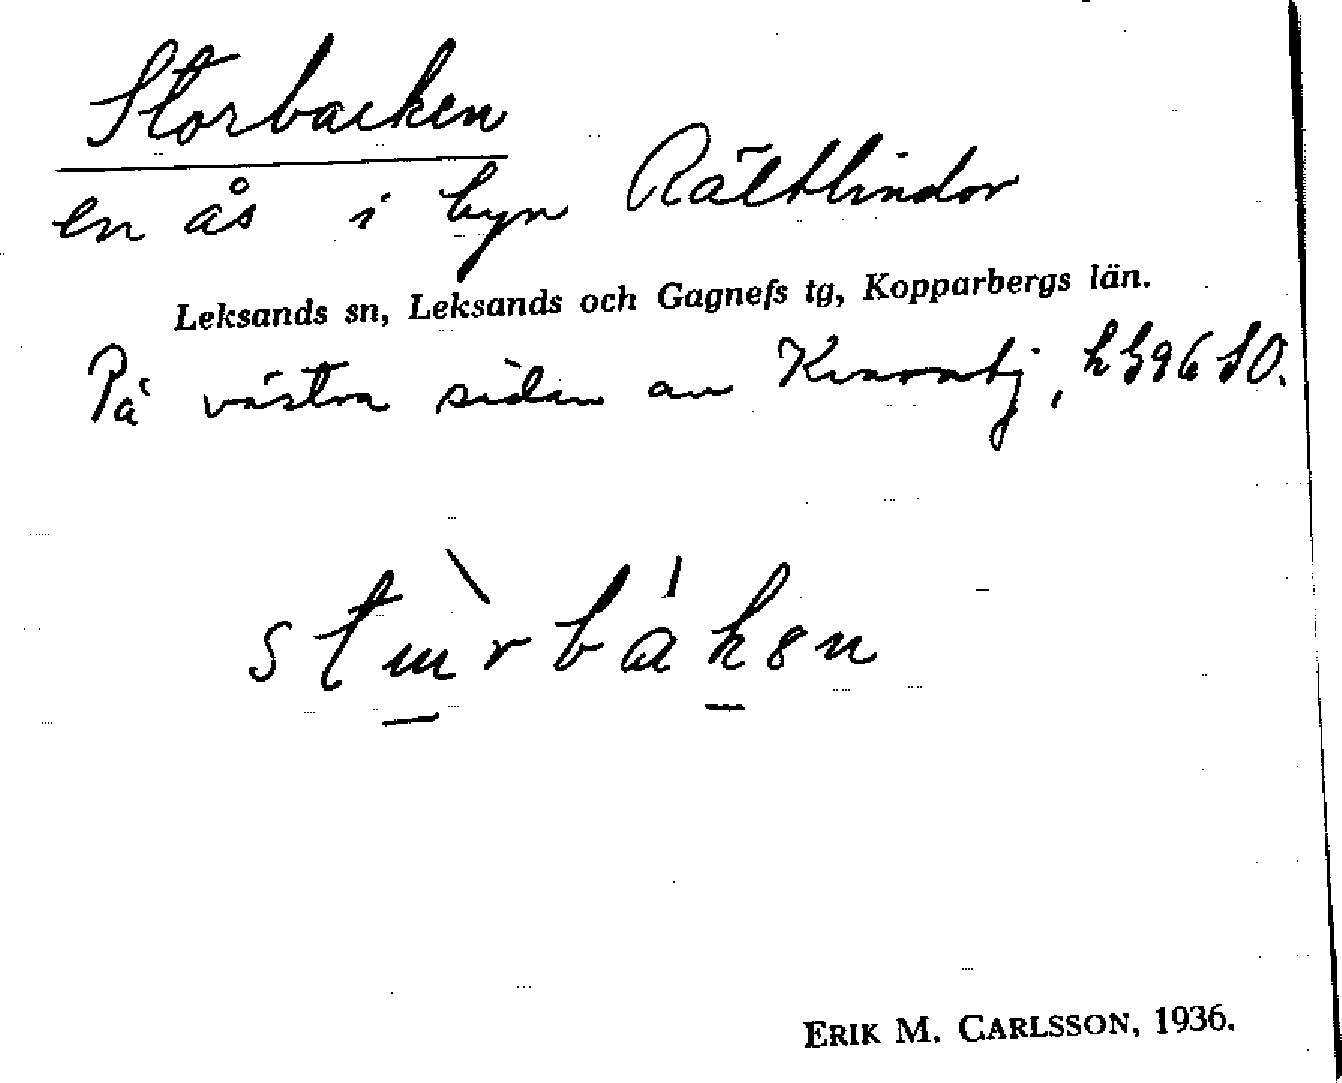 Storbacken
en ås i byn Rältlindor
Leksands sn, Leksands och Gagnefs tg, Kopparbergs län.
På västra sidan av
ERIK M. CARLSSON, 1936.